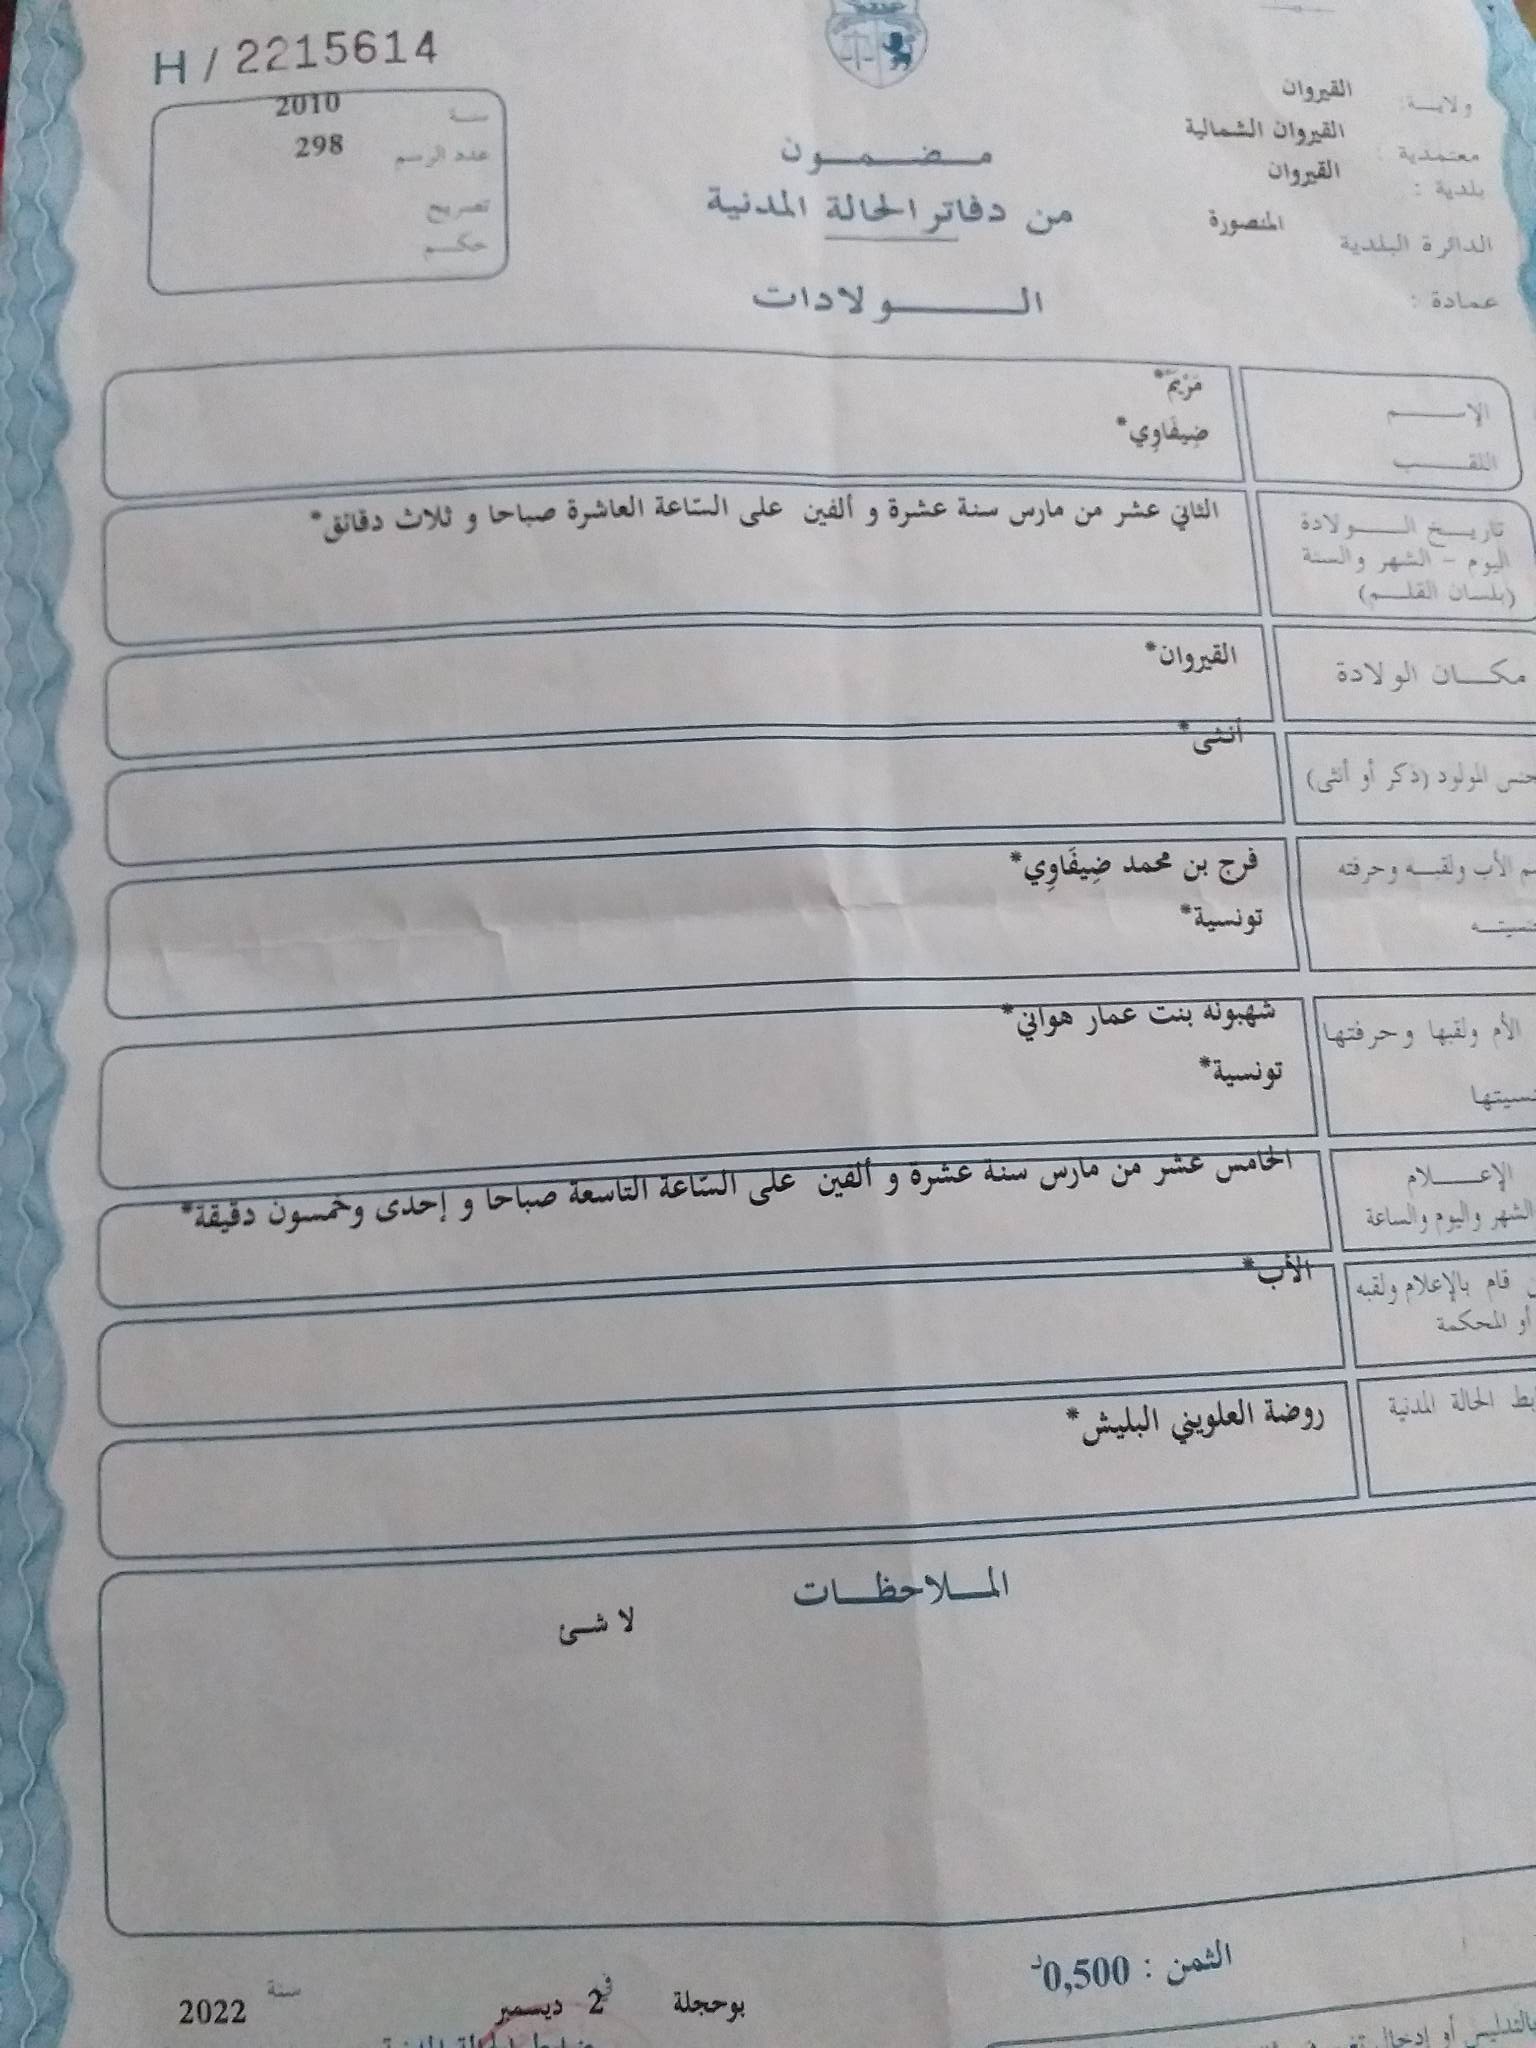 H / 2215614
سنة 2010
عدد الرسم 298
تصريح
حكم
ولاية: القيروان
معتمدية : القيروان الشمالية
بلدية : القيروان
الدائرة البلدية المنصورة
عمادة :
مضمون
من دفاتر الحالة المدنية
الولادات
الإسم مَرْيَمْ*
اللقب ضِيفَاوِي*
تاريخ الولادة
اليوم - الشهر والسنة
(بلسان القلم)
الثاني عشر من مارس سنة عشرة و ألفين على السّاعة العاشرة صباحا و ثلاث دقائق*
مكان الولادة القيروان*
جنس المولود (ذكر أو أنثى) أنثى*
الأب ولقبه وحرفته فرج بن محمد ضِيفَاوِي*
تونسية*
الأم ولقبها وحرفتها شهبونه بنت عمار هواني*
تونسية*
الإعلام
الشهر واليوم والساعة
الخامس عشر من مارس سنة عشرة و ألفين على السّاعة التاسعة صباحا و إحدى وخمسون دقيقة*
قام بالإعلام ولقبه
أو المحكمة
الأب*
الحالة المدنية روضة العلويني البليش*
الملاحظات
لا شئ
الثمن : 0,500د
بوحجلة في 2 ديسمبر سنة 2022